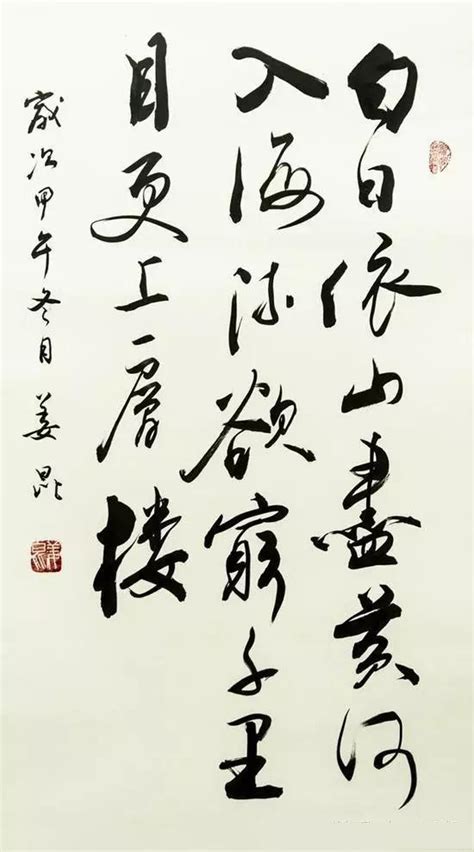 白日依山盡黄河
入海流欲窮千里
目更上一層樓
歲次甲午冬月姜昆